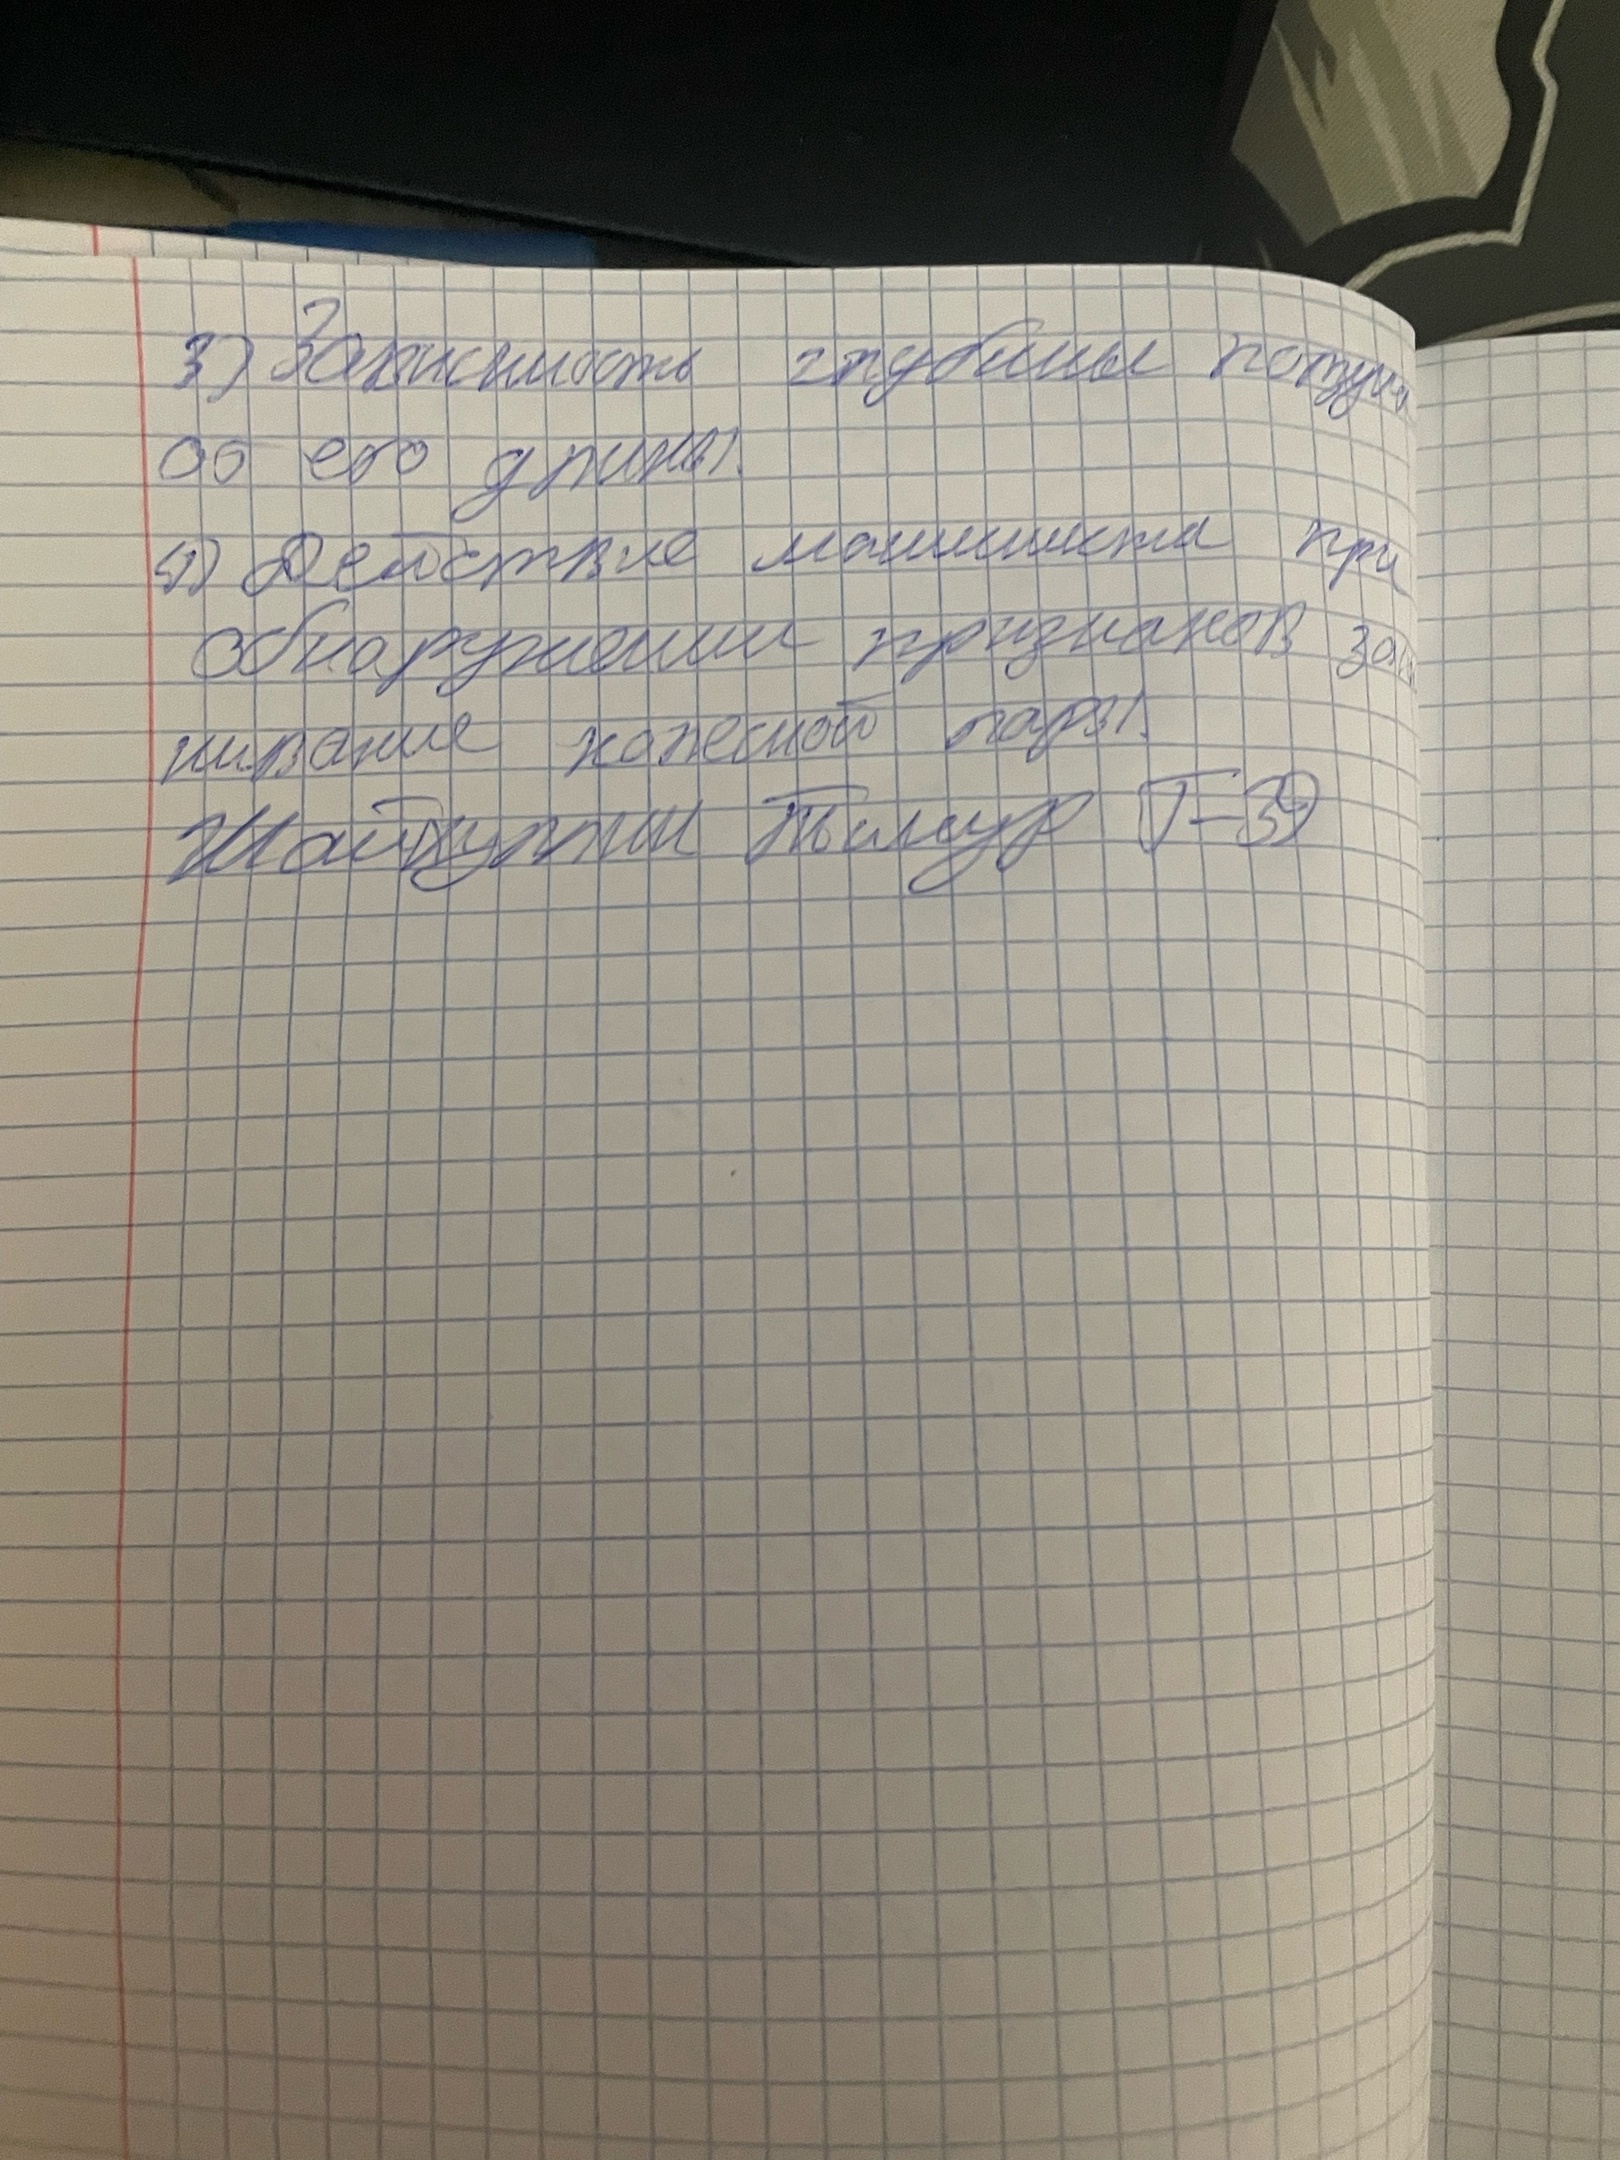 3) Зависимость глубины ползуна
от его длины.
4) Действие машиниста при
обнаружении признаков закли
нивание колесной пары.
Тимур Т-39